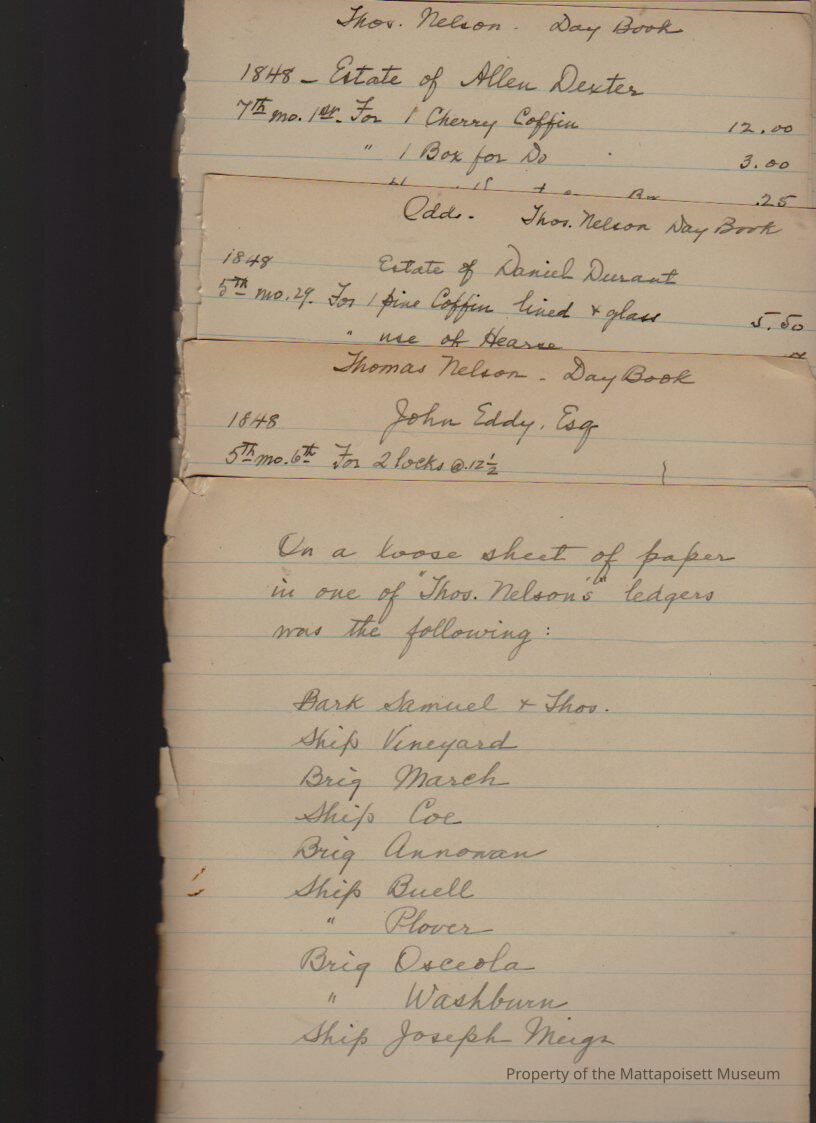 Thos. Nelson. Day Book
1848 - Estate of Allen Dexter
7th mo. 1st. For 1 Cherry Coffin 12.00
" 1 Box for Do 3.00
.25
Odds. Thos. Nelson Day Book
1848 Estate of Daniel Durant
5th mo. 29. For 1 pine Coffin lined + glass 5.50
" use of Hearse
Thomas Nelson - Day Book
1848 John Eddy, Esq
5th mo. 6th For 2 locks @ .12½
On a loose sheet of paper
in one of "Thos. Nelson's" ledgers
was the following:
Bark Samuel + Thos.
Ship Vineyard
Brig March
Ship Coe
Brig Annowan
Ship Buell
" Plover
Brig Osceola
" Washburn
Ship Joseph Meigs
Property of the Mattapoisett Museum